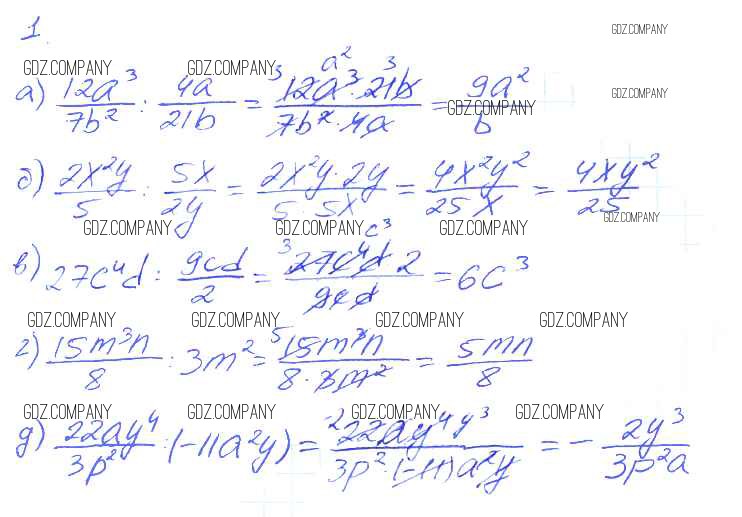 1.
GDZ.COMPANY
GDZ.COMPANY GDZ.COMPANY GDZ.COMPANY
а) 12a³/7b² : 4a/21b = 12a³·21b/7b²·4a = 9a²/b
3 a² 3
GDZ.COMPANY
б) 2x²y/5 : 5x/2y = 2x²y·2y/5·5x = 4x²y²/25x = 4xy²/25
GDZ.COMPANY GDZ.COMPANY GDZ.COMPANY GDZ.COMPANY
в) 27c⁴d : 9cd/2 = 27c⁴d 2/9cd = 6c³
3 c³
GDZ.COMPANY GDZ.COMPANY GDZ.COMPANY GDZ.COMPANY
г) 15m³n/8 : 3m² = 15m³n/8·3m² = 5mn/8
5
GDZ.COMPANY GDZ.COMPANY GDZ.COMPANY GDZ.COMPANY
д) 22ay⁴/3p² : (-11a²y) = 22ay⁴/3p²·(-11)a²y = - 2y³/3p²a
2 y³